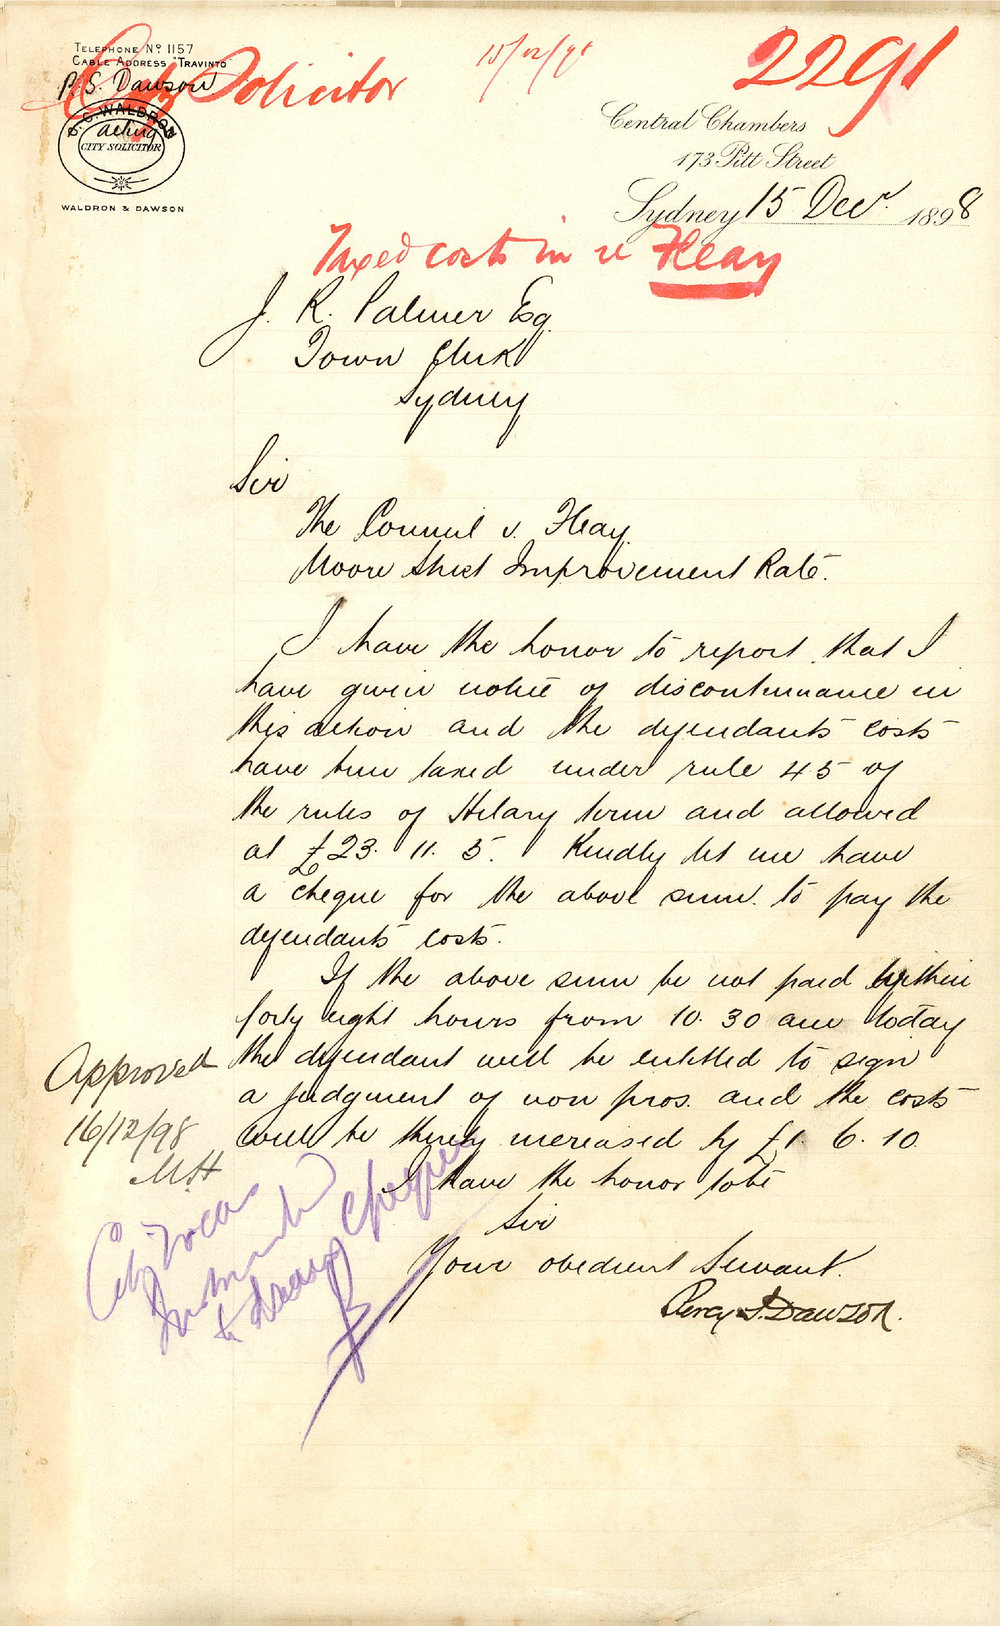 TELEPHONE No 1157
CABLE ADDRESS "TRAVINTO"
P. S. Dawson
T. C. WALDRON
acting
CITY SOLICITOR
WALDRON & DAWSON
City Solicitor
15/12/98
2291
Central Chambers
173 Pitt Street
Sydney 15 Decr. 1898
Taxed costs in re Fleay
J. R. Palmer Esq
Town Clerk
Sydney
Sir
The Council v. Fleay.
Moore Street Improvement Rate.
I have the honor to report that I
have given notice of discontinuance in
this action and the defendants costs
have been taxed under rule 45 of
the rules of Hilary term and allowed
at £23. 11. 5. Kindly let me have
a cheque for the above sum to pay the
defendants costs.
If the above sum be not paid within
forty eight hours from 10. 30 am today
the defendant will be entitled to sign
a judgment of non pros. and the costs
will be thereby increased by £1. 6. 10
I have the honor to be
Sir
Your obedient Servant.
Percy S. Dawson.
Approved
16/12/98
M.H
City Treas
to draw cheque